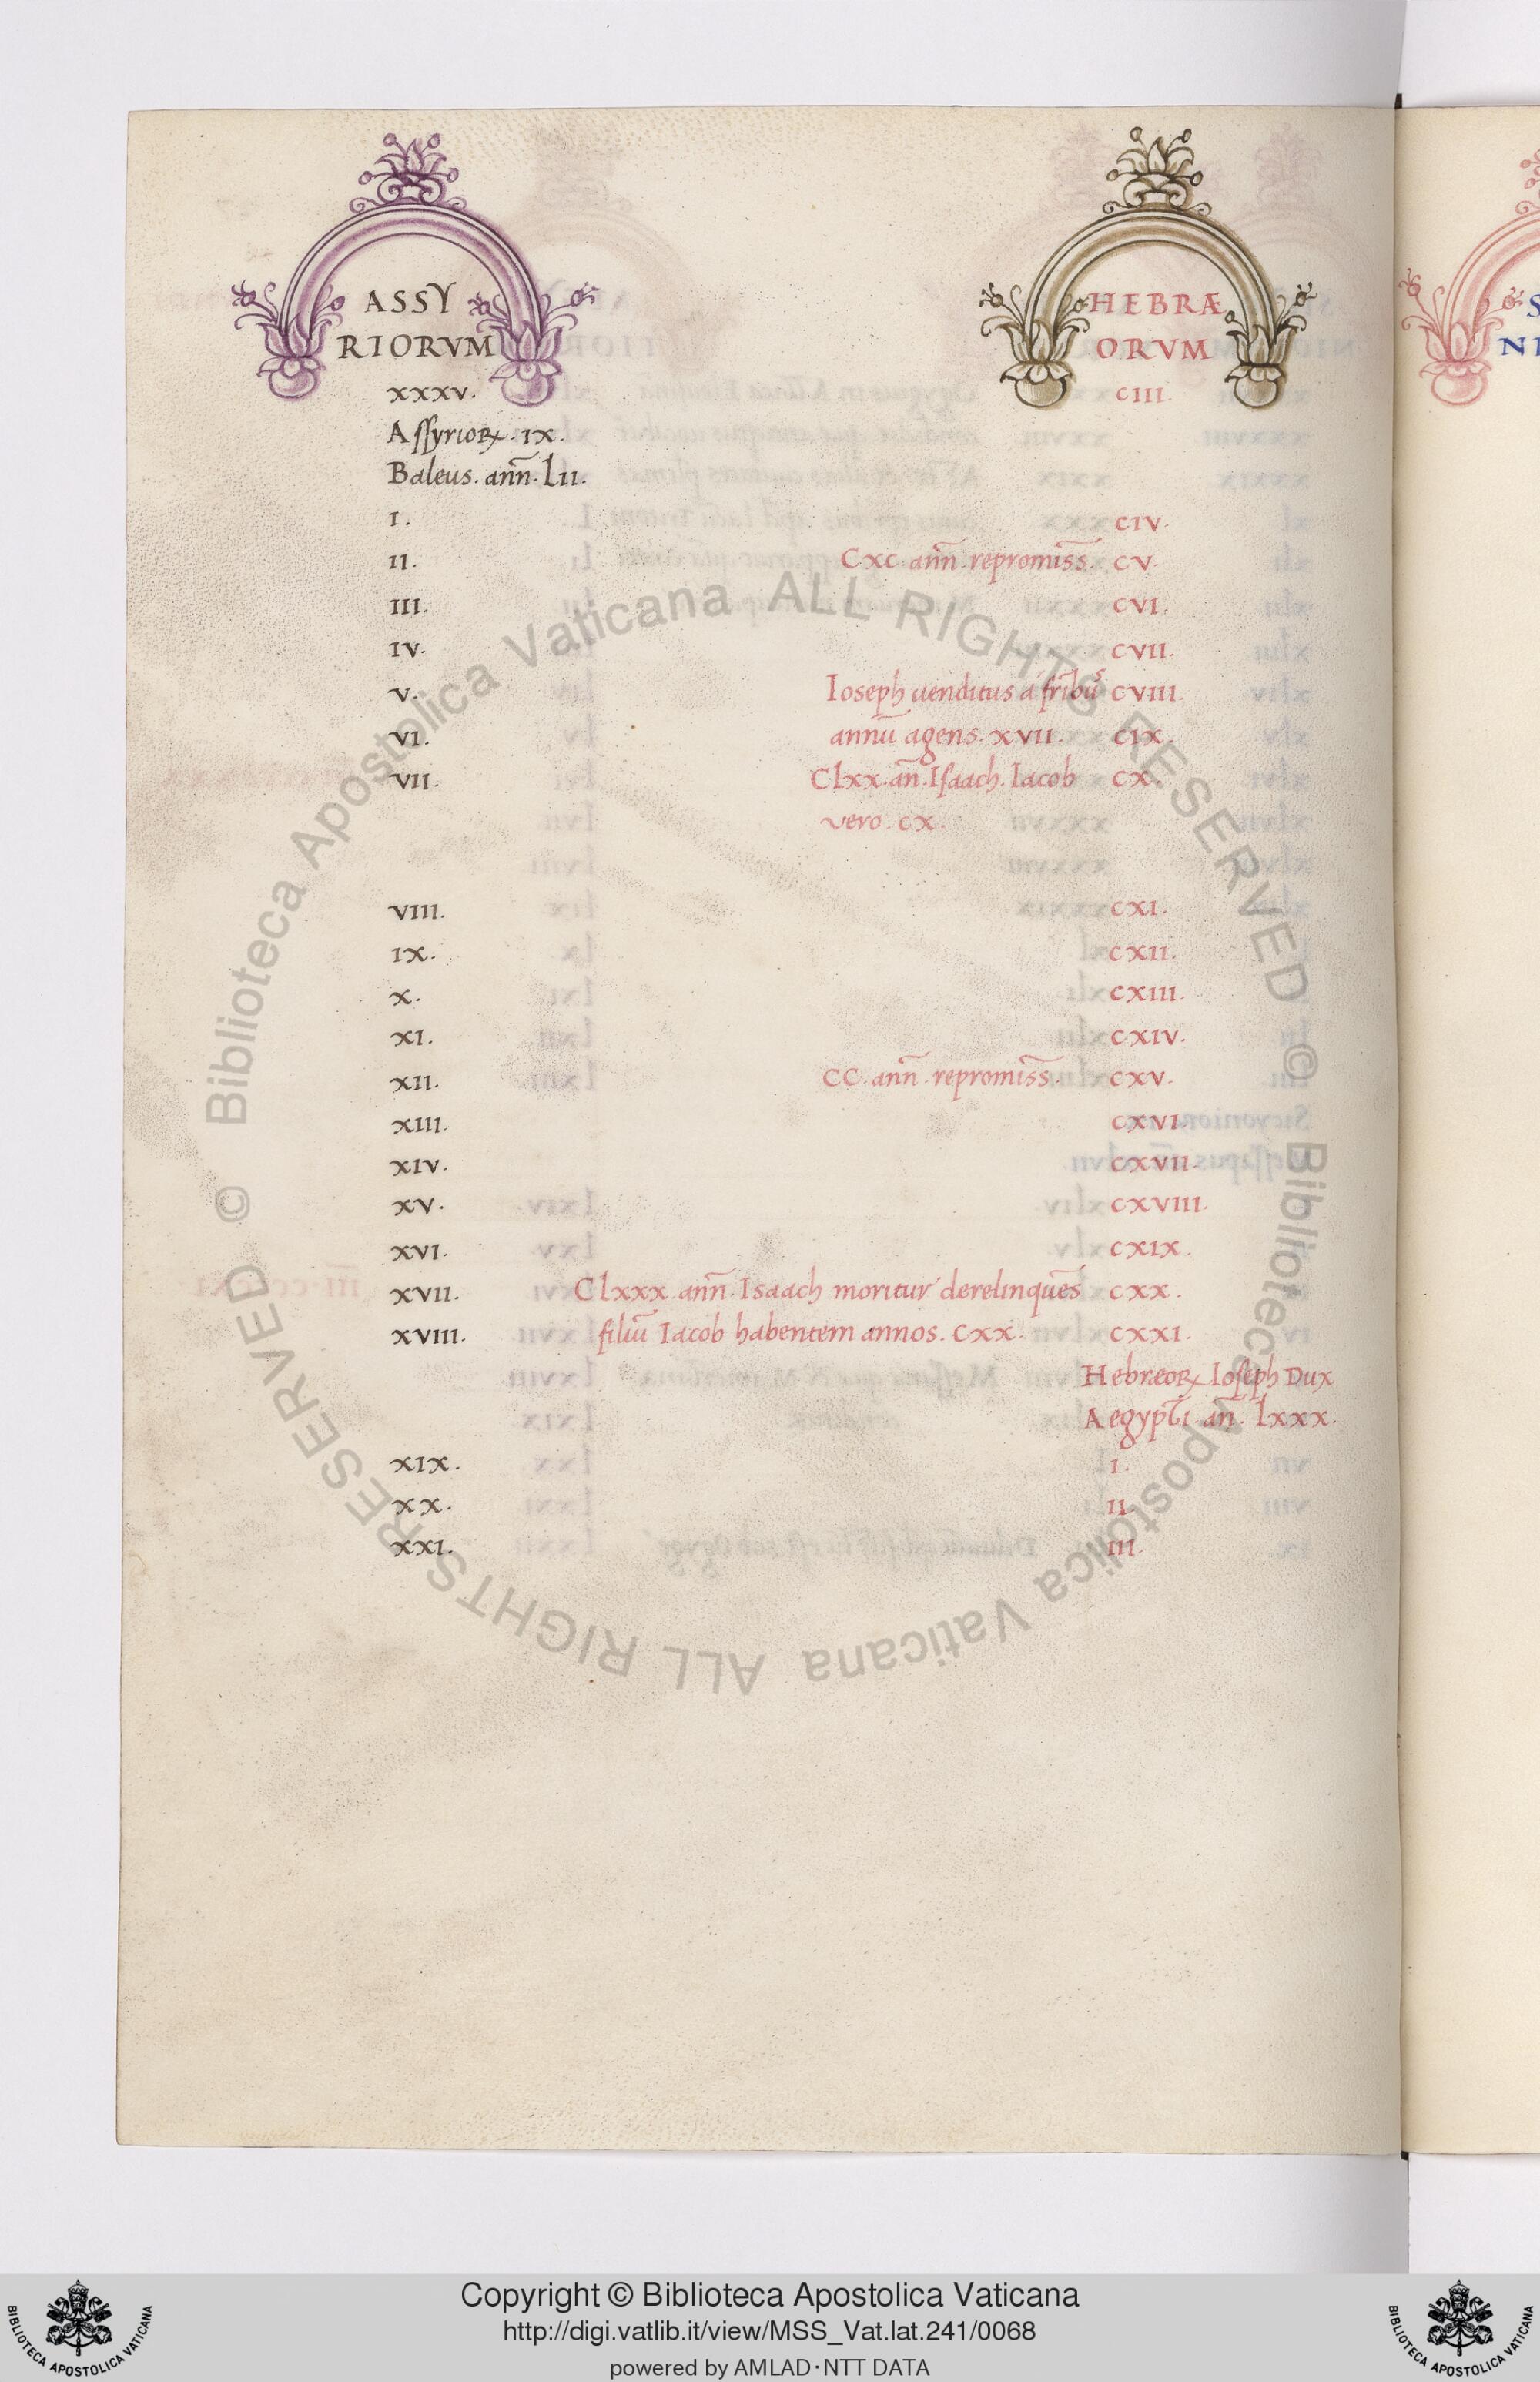 ASSY HEBRÆ
RIORVM ORVM
XXXV. CIII.
Aſſyrioꝝ. IX.
Baleus. ann̄. Lii.
I. CIV.
II. Cxc. ann̄. repromiss̄. CV.
III. CVI.
IV. CVII.
V. Ioseph uenditus a fr̄ibus CVIII.
VI. annū agens. XVII. CIX.
VII. Clxx. an̄. Iſaach. Iacob CX.
vero. CX.
VIII. CXI.
IX. CXII.
X. CXIII.
XI. CXIV.
XII. CC. ann̄. repromiss̄. CXV.
XIII. CXVI.
XIV. CXVII.
XV. CXVIII.
XVI. CXIX.
XVII. Clxxx. ann̄. Isaach moritur derelinquēs CXX.
XVIII. filiū Iacob habentem annos. CXX. CXXI.
Hebræoꝝ Ioſeph Dux
Aegypti. an̄. lxxx.
XIX. I.
XX. II.
XXI. III.
© Biblioteca Apostolica Vaticana ALL RIGHTS RESERVED
© Biblioteca Apostolica Vaticana ALL RIGHTS RESERVED
Copyright © Biblioteca Apostolica Vaticana
http://digi.vatlib.it/view/MSS_Vat.lat.241/0068
powered by AMLAD·NTT DATA
BIBLIOTECA APOSTOLICA VATICANA
BIBLIOTECA APOSTOLICA VATICANA